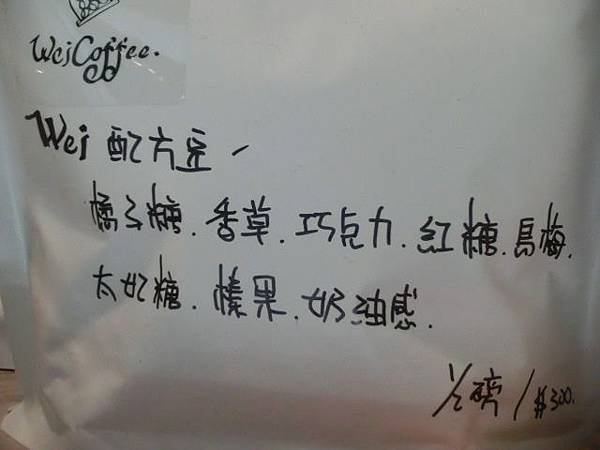 WeiCoffee.
Wei 配方豆
橘子糖.香草.巧克力.紅糖.烏梅.
太妃糖.榛果.奶油感.
1/2磅/$300.